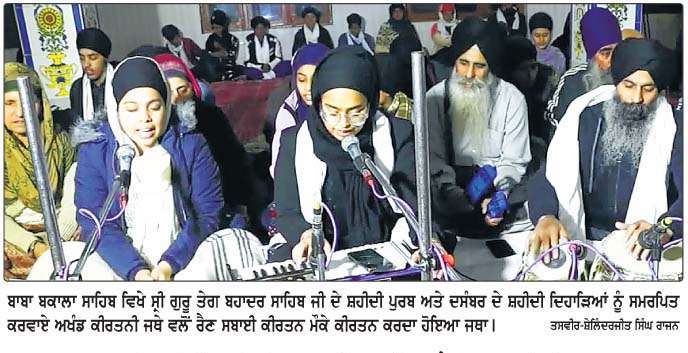 ਬਾਬਾ ਬਕਾਲਾ ਸਾਹਿਬ ਵਿਖੇ ਸ੍ਰੀ ਗੁਰੂ ਤੇਗ ਬਹਾਦਰ ਸਾਹਿਬ ਜੀ ਦੇ ਸ਼ਹੀਦੀ ਪੁਰਬ ਅਤੇ ਦਸੰਬਰ ਦੇ ਸ਼ਹੀਦੀ ਦਿਹਾੜਿਆਂ ਨੂੰ ਸਮਰਪਿਤ
ਕਰਵਾਏ ਅਖੰਡ ਕੀਰਤਨੀ ਜਥੇ ਵਲੋਂ ਰੈਣ ਸਬਾਈ ਕੀਰਤਨ ਮੌਕੇ ਕੀਰਤਨ ਕਰਦਾ ਹੋਇਆ ਜਥਾ।
ਤਸਵੀਰ-ਸ਼ੇਲਿੰਦਰਜੀਤ ਸਿੰਘ ਰਾਜਨ